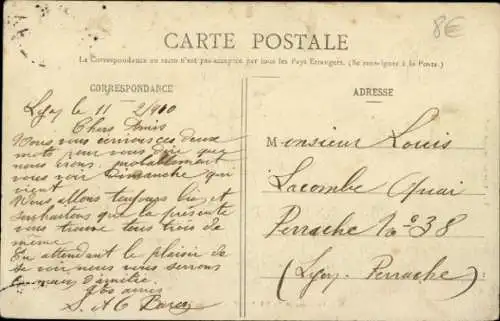 8€
CARTE POSTALE
La Correspondance au recto n'est pas acceptée par tous les Pays Etrangers. (Se renseigner à la Poste.)
CORRESPONDANCE
Lyon le 11 2/910
Chers Amis
Vous vous envoies ces deux
mots pour vous dire que
nous irons probablement
vous voir Dimanche qui
vient
Nous allons toujours bien et
souhaitons que la présente
vous trouve tous trois de
même
En attendant le plaisir de
te voir nous vous serrons
la main d'amitié.
Vos amis
S. A C
ADRESSE
Monsieur Louis
Lacombe Quai
Perrache No 38
(Lyon-Perrache)